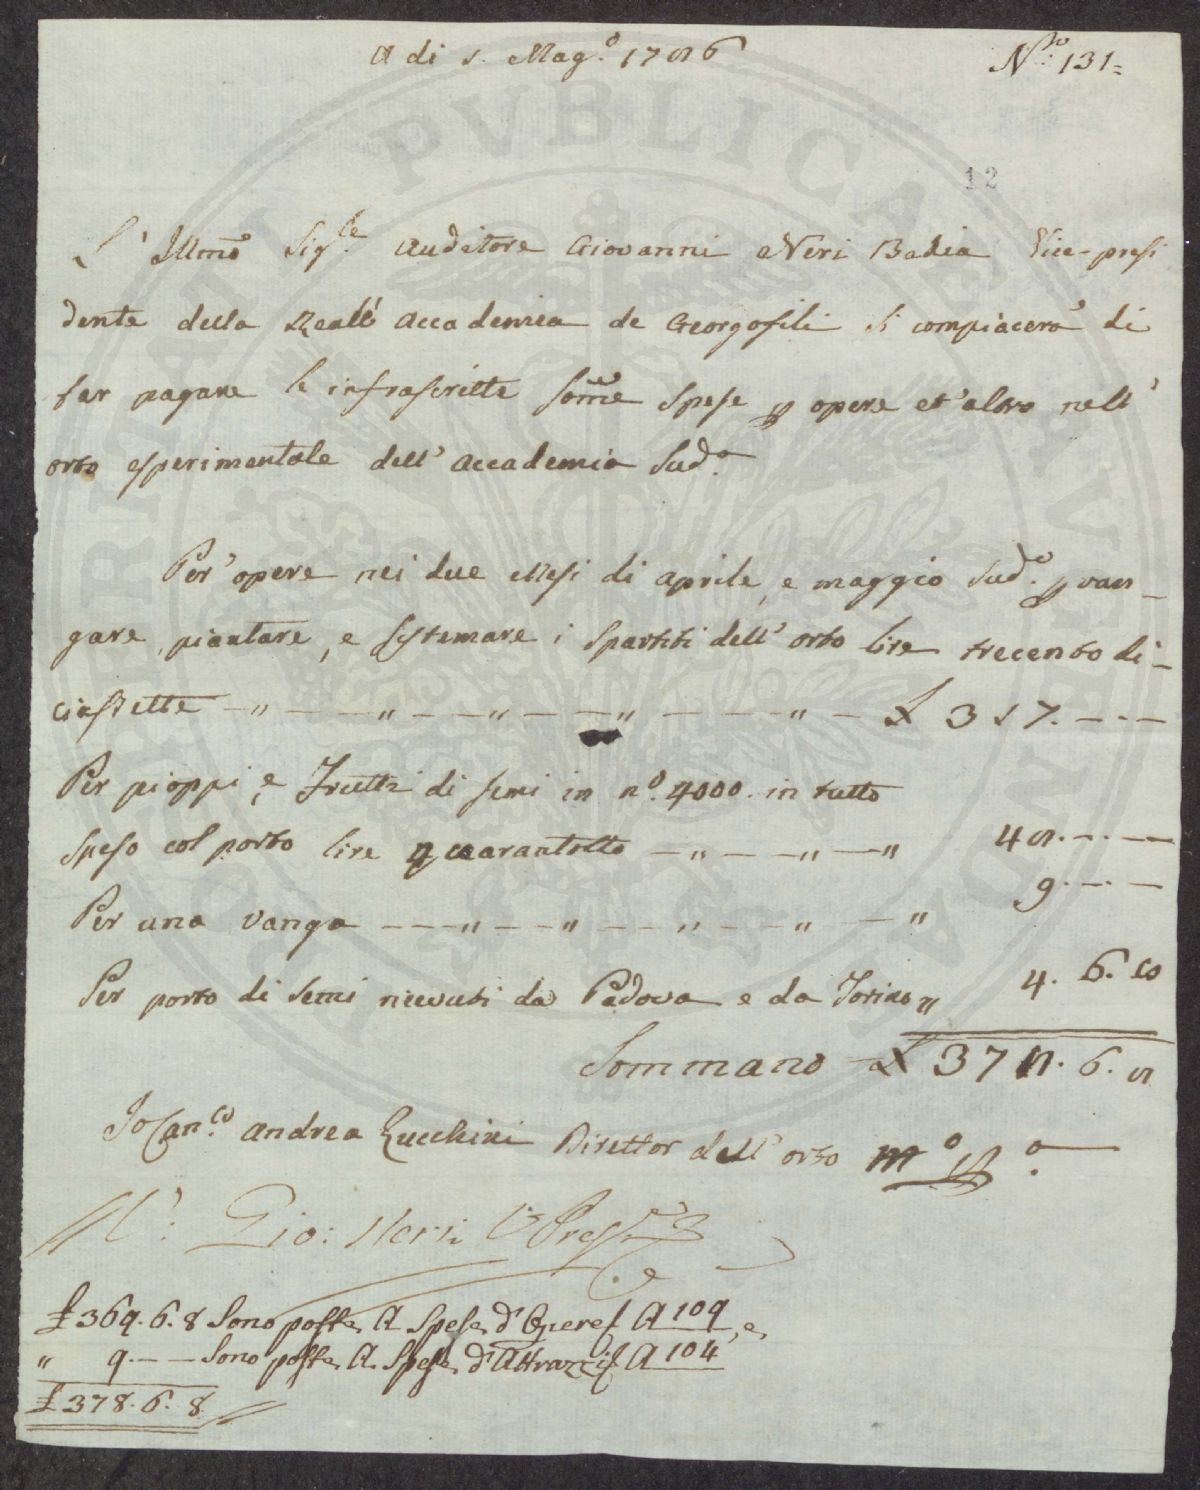 A di 1. Mag.o 1786
N.ro 131=
12
L' Illmo Sig.le Auditore Giovanni Neri Badia Vice-presi
dente della Reale Accademia de Georgofili si compiacerà di
far pagare le infrascritte Somme Spese p opere et altro nell'
orto esperimentale dell' Accademia Sud.a
Per opere nei due Mesi di aprile, e maggio Sud.o p van-
gare, piantare, e sistemare i spartiti dell' orto lire trecento di-
ciassette — " — — " — — " — — " — — " — £ 317. — . —
Per pioppi, e Frutti di semi in n.o 4000. in tutto
speso col porto lire quarantotto — " — — " — " 48. — . —
Per una vanga — — " — — " — — " — — " — " 9. — . —
Per porto di semi ricevuti da Padova e da Torino " 4. 6. 8
Sommano £ 378. 6. 8
Io Can.co Andrea Zucchini Direttor dell' orto m.o p.a
Gio: Neri V. Pres.
£ 369. 6. 8 Sono poste A Spese d'Opere A 109, e
" 9. — — Sono poste A Spese d'Attrazzi A 104
£ 378. 6. 8
PUBLICAE